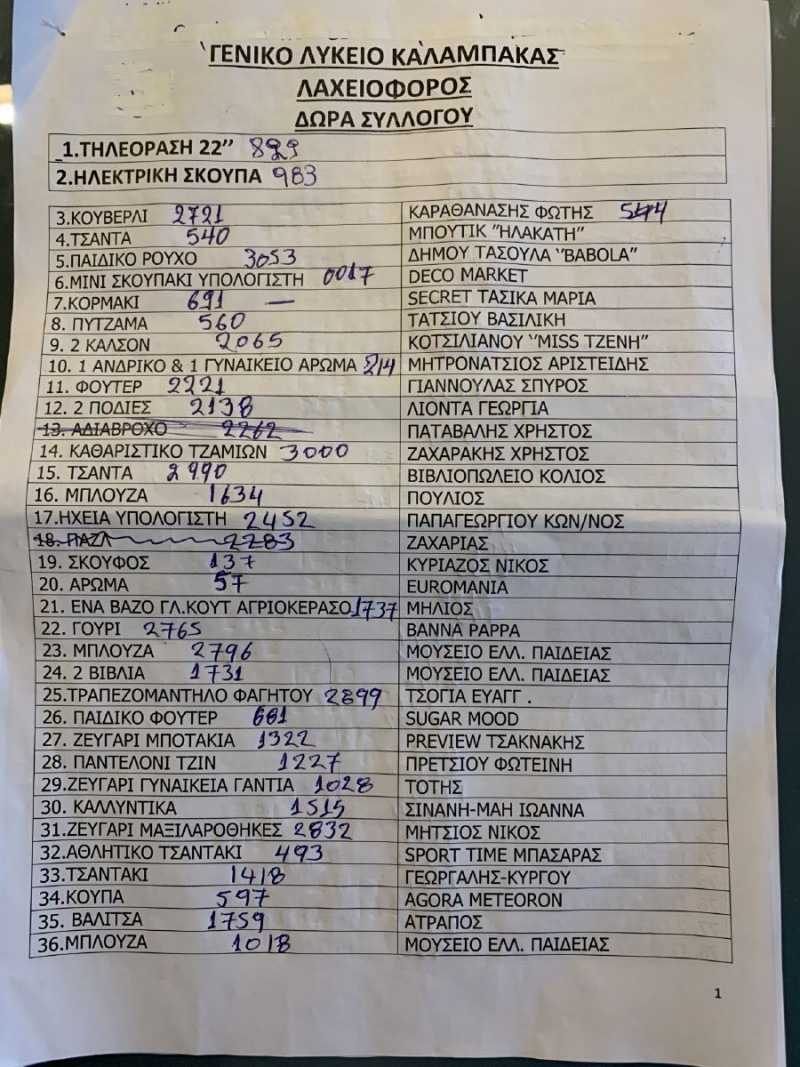 ΓΕΝΙΚΟ ΛΥΚΕΙΟ ΚΑΛΑΜΠΑΚΑΣ
ΛΑΧΕΙΟΦΟΡΟΣ
ΔΩΡΑ ΣΥΛΛΟΓΟΥ
1.ΤΗΛΕΟΡΑΣΗ 22’’
2.ΗΛΕΚΤΡΙΚΗ ΣΚΟΥΠΑ 983
3.ΚΟΥΒΕΡΛΙ 2721 ΚΑΡΑΘΑΝΑΣΗΣ ΦΩΤΗΣ
4.ΤΣΑΝΤΑ 540 ΜΠΟΥΤΙΚ ‘’ΗΛΑΚΑΤΗ’’
5.ΠΑΙΔΙΚΟ ΡΟΥΧΟ 3053 ΔΗΜΟΥ ΤΑΣΟΥΛΑ ‘’BABOLA’’
6.ΜΙΝΙ ΣΚΟΥΠΑΚΙ ΥΠΟΛΟΓΙΣΤΗ 0017 DECO MARKET
7.ΚΟΡΜΑΚΙ 691 — SECRET ΤΑΣΙΚΑ ΜΑΡΙΑ
8. ΠΥΤΖΑΜΑ 560 ΤΑΤΣΙΟΥ ΒΑΣΙΛΙΚΗ
9. 2 ΚΑΛΣΟΝ 2065 ΚΟΤΣΙΛΙΑΝΟΥ ‘’MISS ΤΖΕΝΗ’’
10. 1 ΑΝΔΡΙΚΟ & 1 ΓΥΝΑΙΚΕΙΟ ΑΡΩΜΑ ΜΗΤΡΟΝΑΤΣΙΟΣ ΑΡΙΣΤΕΙΔΗΣ
11. ΦΟΥΤΕΡ 2221 ΓΙΑΝΝΟΥΛΑΣ ΣΠΥΡΟΣ
12. 2 ΠΟΔΙΕΣ 2138 ΛΙΟΝΤΑ ΓΕΩΡΓΙΑ
13. ΑΔΙΑΒΡΟΧΟ 2262 ΠΑΤΑΒΑΛΗΣ ΧΡΗΣΤΟΣ
14. ΚΑΘΑΡΙΣΤΙΚΟ ΤΖΑΜΙΩΝ 3000 ΖΑΧΑΡΑΚΗΣ ΧΡΗΣΤΟΣ
15. ΤΣΑΝΤΑ 2990 ΒΙΒΛΙΟΠΩΛΕΙΟ ΚΟΛΙΟΣ
16. ΜΠΛΟΥΖΑ 1634 ΠΟΥΛΙΟΣ
17.ΗΧΕΙΑ ΥΠΟΛΟΓΙΣΤΗ 2452 ΠΑΠΑΓΕΩΡΓΙΟΥ ΚΩΝ/ΝΟΣ
18. ΠΑΖΛ 2283 ΖΑΧΑΡΙΑΣ
19. ΣΚΟΥΦΟΣ 137 ΚΥΡΙΑΖΟΣ ΝΙΚΟΣ
20. ΑΡΩΜΑ 57 EUROMANIA
21. ΕΝΑ ΒΑΖΟ ΓΛ.ΚΟΥΤ ΑΓΡΙΟΚΕΡΑΣΟ 1737 ΜΗΛΙΟΣ
22. ΓΟΥΡΙ 2765 ΒΑΝΝΑ PAPPA
23. ΜΠΛΟΥΖΑ 2796 ΜΟΥΣΕΙΟ ΕΛΛ. ΠΑΙΔΕΙΑΣ
24. 2 ΒΙΒΛΙΑ 1731 ΜΟΥΣΕΙΟ ΕΛΛ. ΠΑΙΔΕΙΑΣ
25.ΤΡΑΠΕΖΟΜΑΝΤΗΛΟ ΦΑΓΗΤΟΥ 2899 ΤΣΟΓΙΑ ΕΥΑΓΓ .
26. ΠΑΙΔΙΚΟ ΦΟΥΤΕΡ SUGAR MOOD
27. ΖΕΥΓΑΡΙ ΜΠΟΤΑΚΙΑ 1322 PREVIEW ΤΣΑΚΝΑΚΗΣ
28. ΠΑΝΤΕΛΟΝΙ ΤΖΙΝ 1227 ΠΡΕΤΣΙΟΥ ΦΩΤΕΙΝΗ
29.ΖΕΥΓΑΡΙ ΓΥΝΑΙΚΕΙΑ ΓΑΝΤΙΑ 1028 ΤΟΤΗΣ
30. ΚΑΛΛΥΝΤΙΚΑ 1515 ΣΙΝΑΝΗ-ΜΑΗ ΙΩΑΝΝΑ
31.ΖΕΥΓΑΡΙ ΜΑΞΙΛΑΡΟΘΗΚΕΣ 2832 ΜΗΤΣΙΟΣ ΝΙΚΟΣ
32.ΑΘΛΗΤΙΚΟ ΤΣΑΝΤΑΚΙ 493 SPORT TIME ΜΠΑΣΑΡΑΣ
33.ΤΣΑΝΤΑΚΙ 1418 ΓΕΩΡΓΑΛΗΣ-ΚΥΡΓΟΥ
34.ΚΟΥΠΑ 597 AGORA METEORON
35. ΒΑΛΙΤΣΑ 1759 ΑΤΡΑΠΟΣ
36.ΜΠΛΟΥΖΑ 1018 ΜΟΥΣΕΙΟ ΕΛΛ. ΠΑΙΔΕΙΑΣ
1